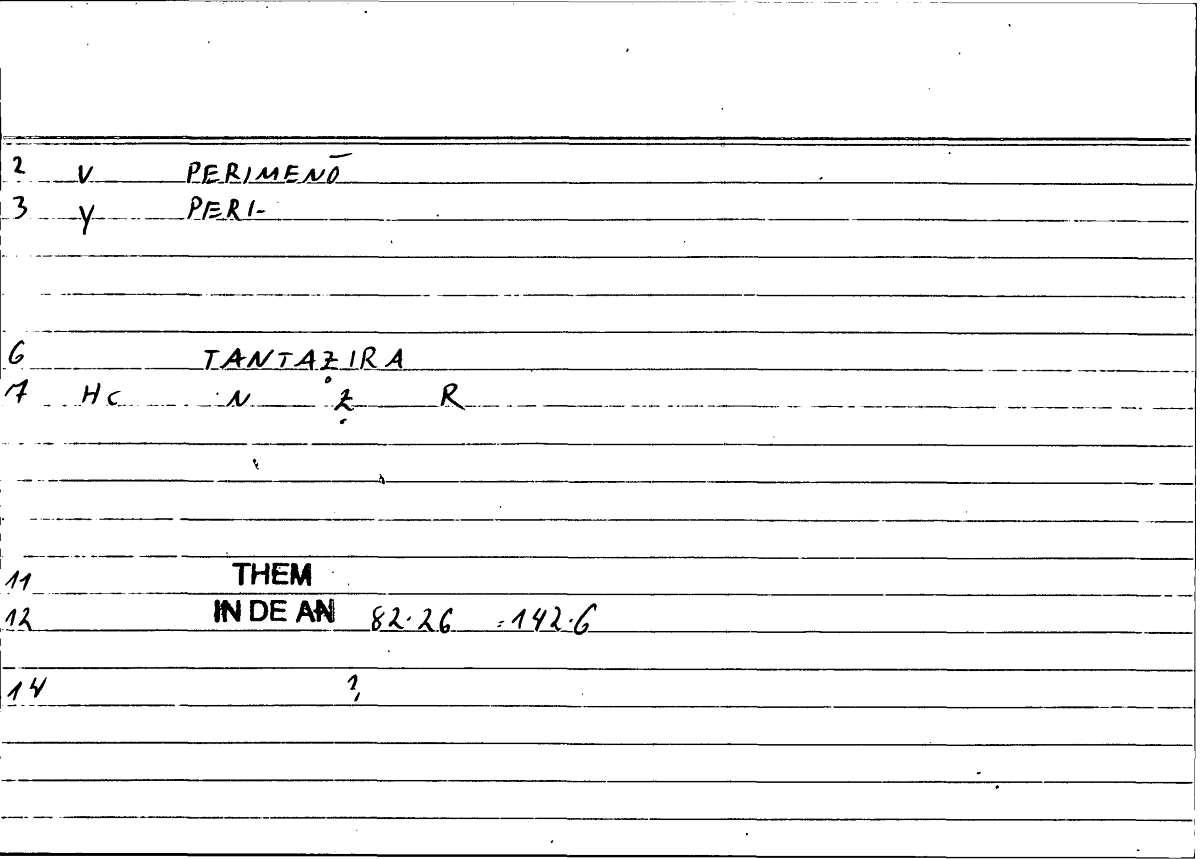 2 V PERIMENŌ
3 y PERI-
6 TANTAẒIRA
7 Hc N Ẓ R
11 THEM
12 IN DE AN 82.26 =142.6
14 ?